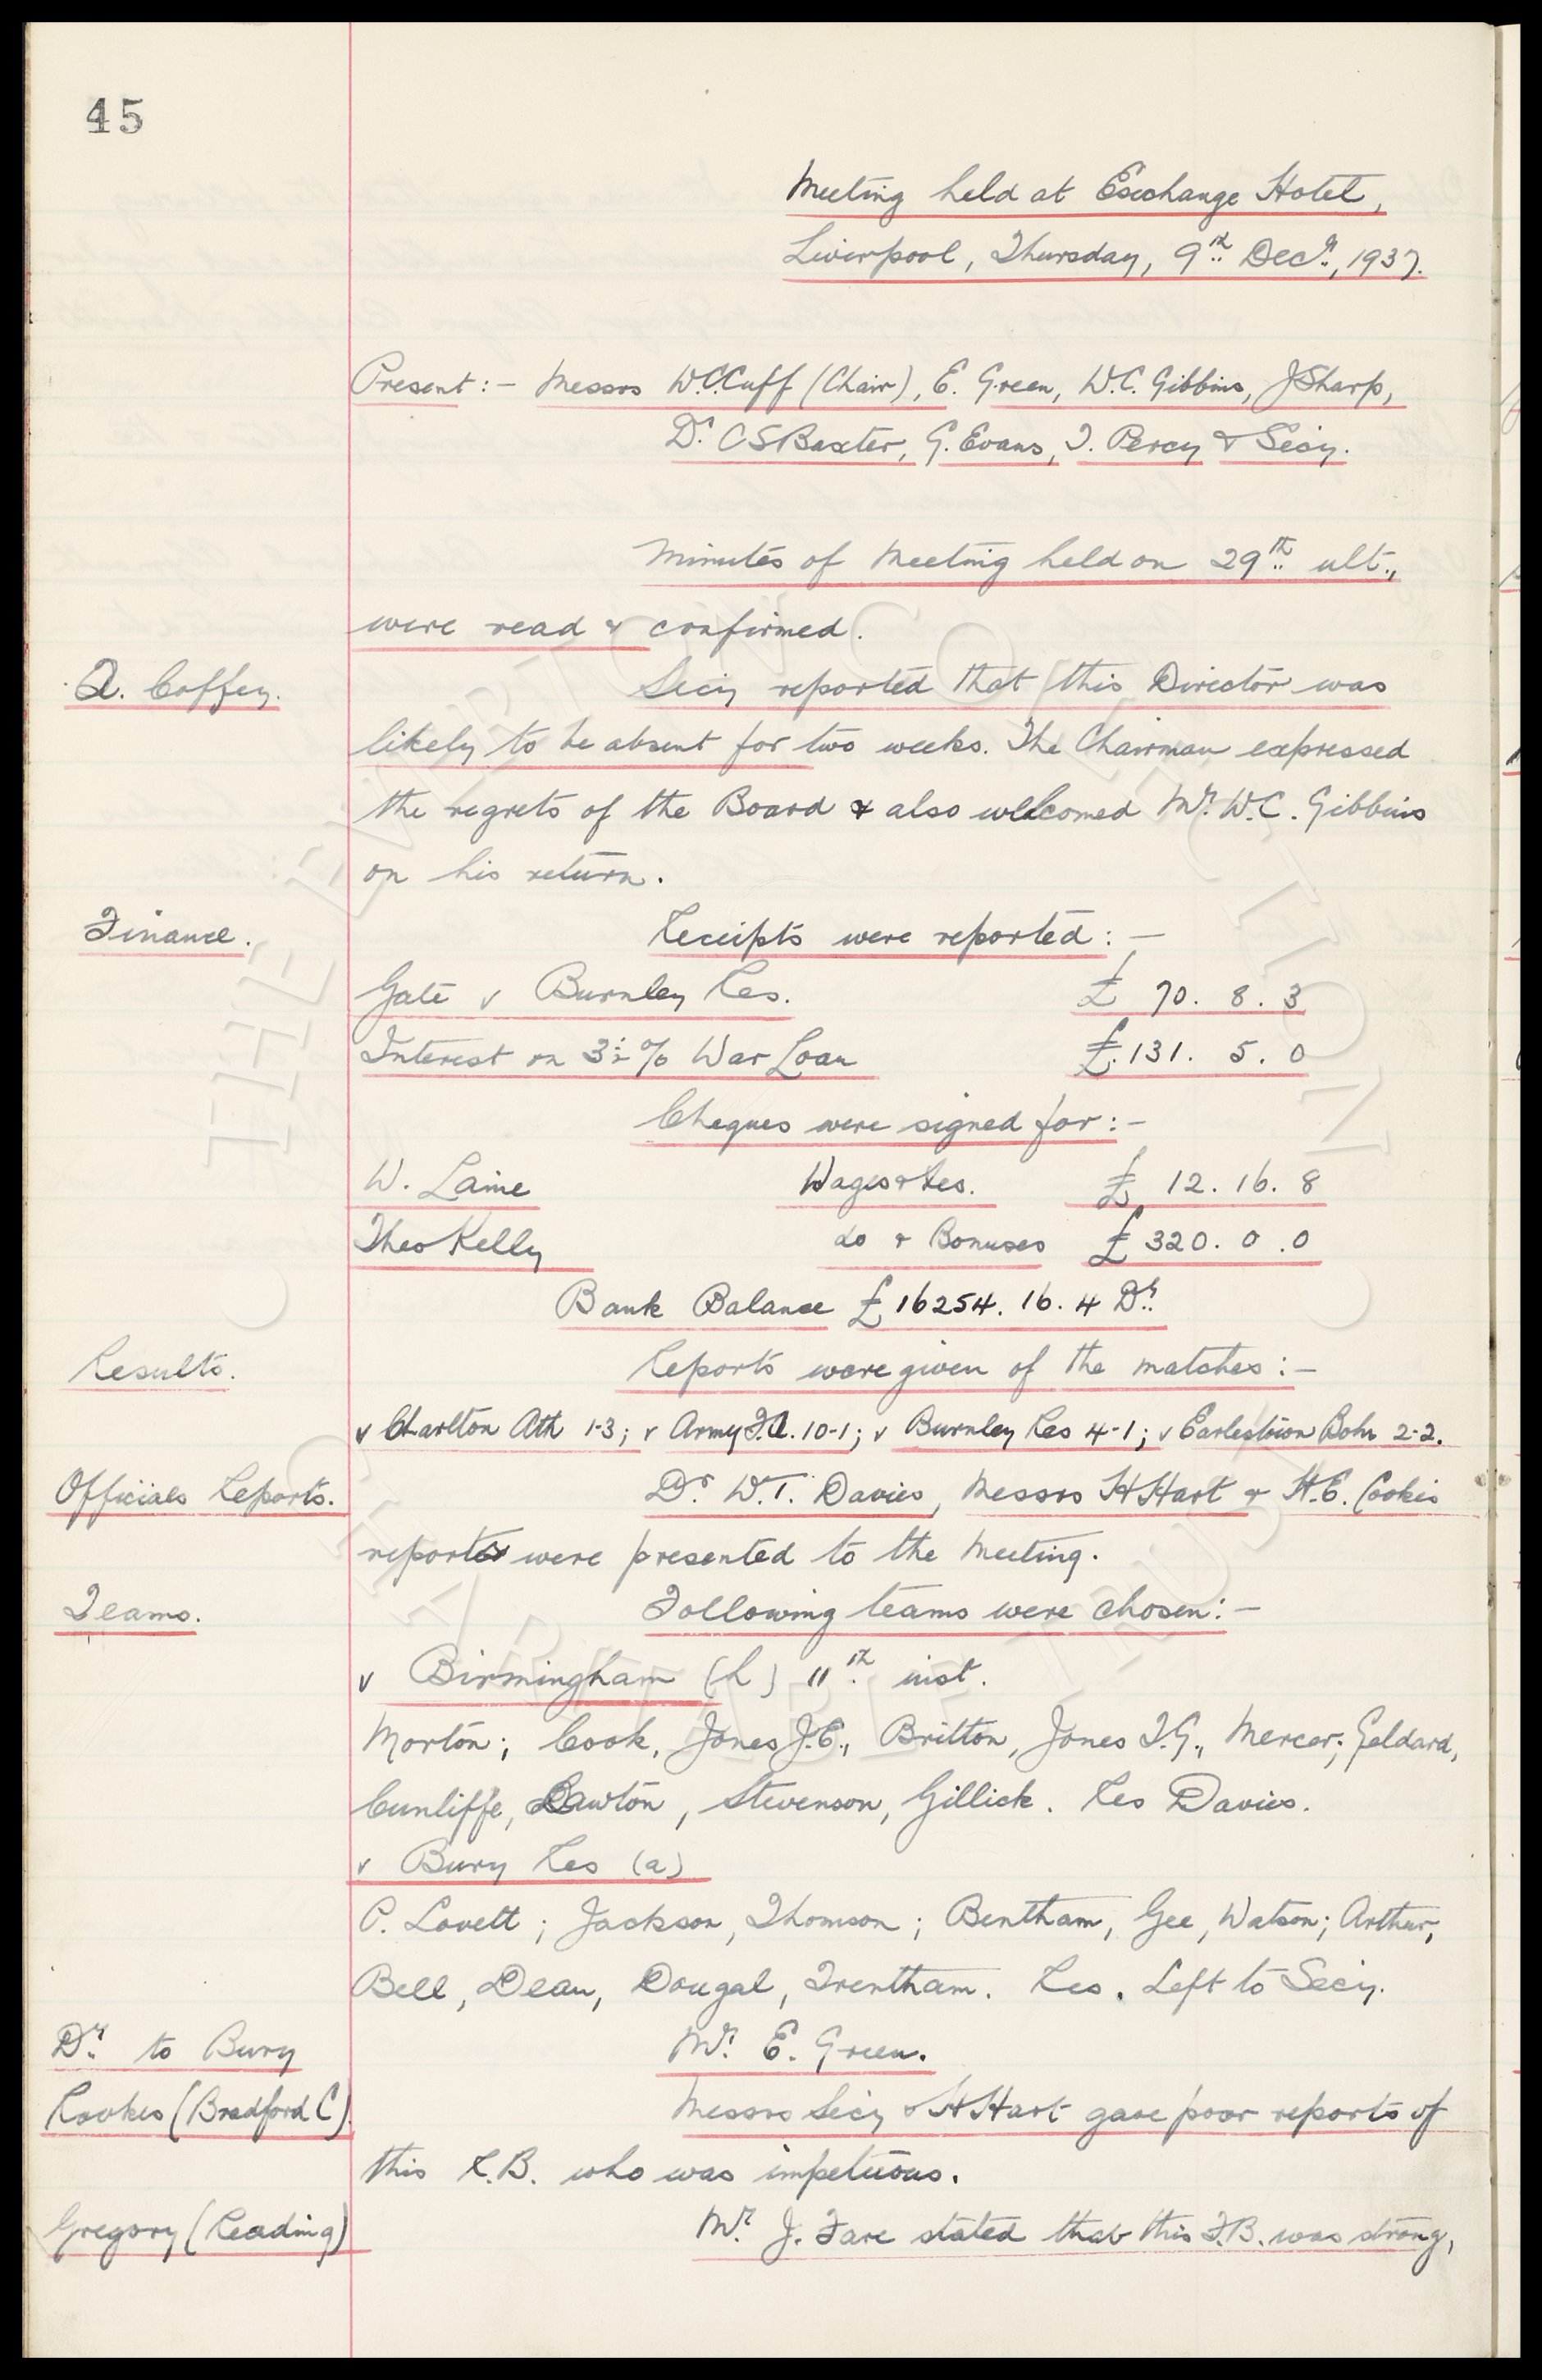 45
Meeting held at Exchange Hotel,
Liverpool, Thursday, 9th Decr, 1937.
Present:- Messrs W.C. Cuff (Chair), E. Green, W.C. Gibbins, J Sharp,
Dr. C S Baxter, G. Evans, T. Percy & Secy.
Minutes of Meeting held on 29th ult.,
were read & confirmed.
A. Coffey. Secy reported that this Director was
likely to be absent for two weeks. The Chairman expressed
the regrets of the Board & also welcomed Mr. W.C. Gibbins
on his return.
Finance. Receipts were reported:-
Gate v Burnley Res. £ 70. 8. 3
Interest on 3½% War Loan £.131. 5. 0
Cheques were signed for:-
W. Laine Wages & Res. £ 12. 16. 8
Theo Kelly do & Bonuses £ 320. 0. 0
Bank Balance £16254. 16. 4 Dr.
Results. Reports were given of the matches:-
v Charlton Ath 1-3; v Army F.A. 10-1; v Burnley Res 4-1; v Earlestown Boh 2-2.
Officials Reports. Dr. W.T. Davies, Messrs H Hart & H.E. Cookes
reports were presented to the Meeting.
Teams. Following teams were chosen:-
v Birmingham (h) 11th inst.
Morton; Cook, Jones J.E., Britton, Jones T.G., Mercer; Geldard,
Cunliffe, Lawton, Stevenson, Gillick. Res Davies.
v Bury Res (a)
P. Lovett; Jackson, Thomson; Bentham, Gee, Watson; Arthur,
Bell, Dean, Dougal, Trentham. Res. Left to Secy.
Dr. to Bury Mr. E. Green.
Rookes (Bradford C) Messrs Secy & H Hart gave poor reports of
this R.B. who was impetuous.
Gregory (Reading) Mr. J. Fare stated that this F.B. was strong,
THE EVERTON COLLECTION
CHARITABLE TRUST